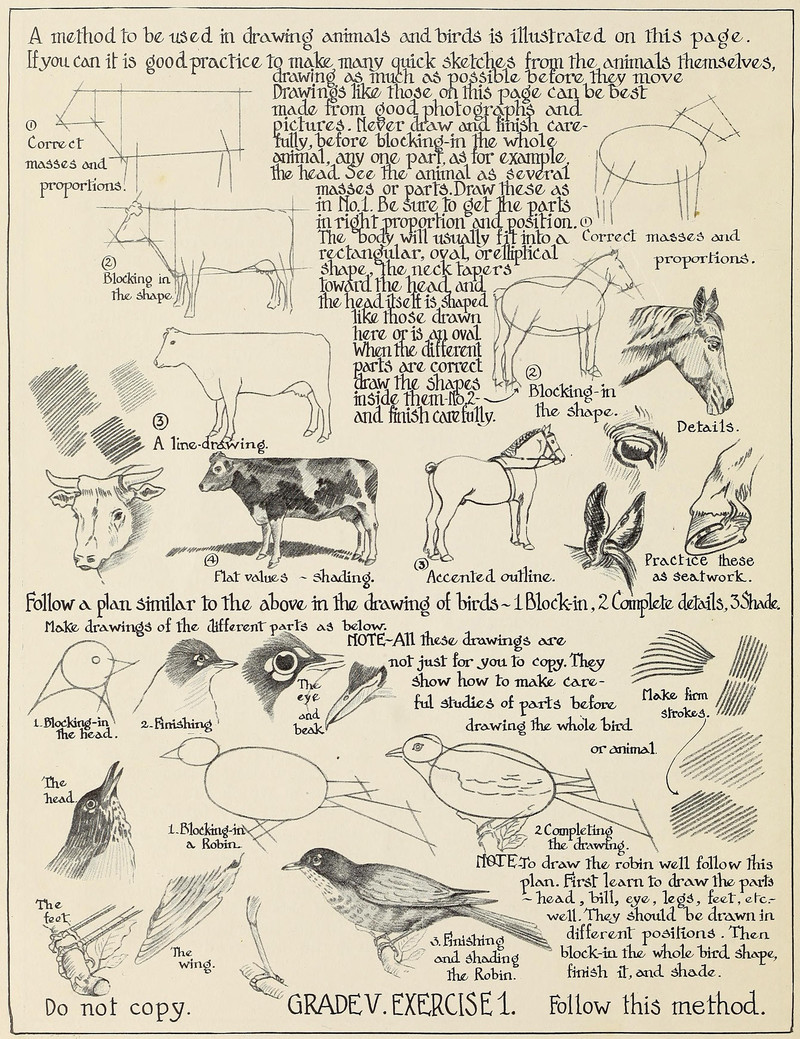 A method to be used in drawing animals and birds is illustrated on this page.
If you can it is good practice to make many quick sketches from the animals themselves,
drawing as much as possible before they move
Drawings like those on this page can be best
made from good photographs and
pictures. Never draw and finish care-
fully, before blocking-in the whole
animal, any one part, as for example,
the head. See the animal as several
masses or parts. Draw these as
in No.1. Be sure to get the parts
in right proportion and position.
The body will usually fit into a
rectangular, oval, or elliptical
shape, the neck tapers
toward the head, and
the head itself is shaped
like those drawn
here or is an oval
When the different
parts are correct
draw the shapes
inside them-No.2-
and finish carefully.
①
Correct
masses and
proportions.
①
Correct masses and
proportions.
②
Blocking in
the shape
②
Blocking-in
the shape.
Details.
③
A line-drawing.
④
Flat values ~ shading.
③
Accented outline.
Practice these
as seatwork.
Follow a plan similar to the above in the drawing of birds ~ 1 Block-in, 2 Complete details, 3 Shade.
Make drawings of the different parts as below.
NOTE-All these drawings are
not just for you to copy. They
show how to make care-
ful studies of parts before
drawing the whole bird
or animal.
1. Blocking-in
the head.
2-Finishing
The
eye
and
beak
Make firm
strokes.
The
head
1-Blocking-in
a Robin-
2 Completing
the drawing.
NOTE-To draw the robin well follow this
plan. First learn to draw the parts
~ head, bill, eye, legs, feet, etc.-
well. They should be drawn in
different positions. Then
block-in the whole bird shape,
finish it, and shade.
The
feet
The
wing.
3. Finishing
and shading
the Robin.
Do not copy.
GRADE V. EXERCISE 1.
Follow this method.